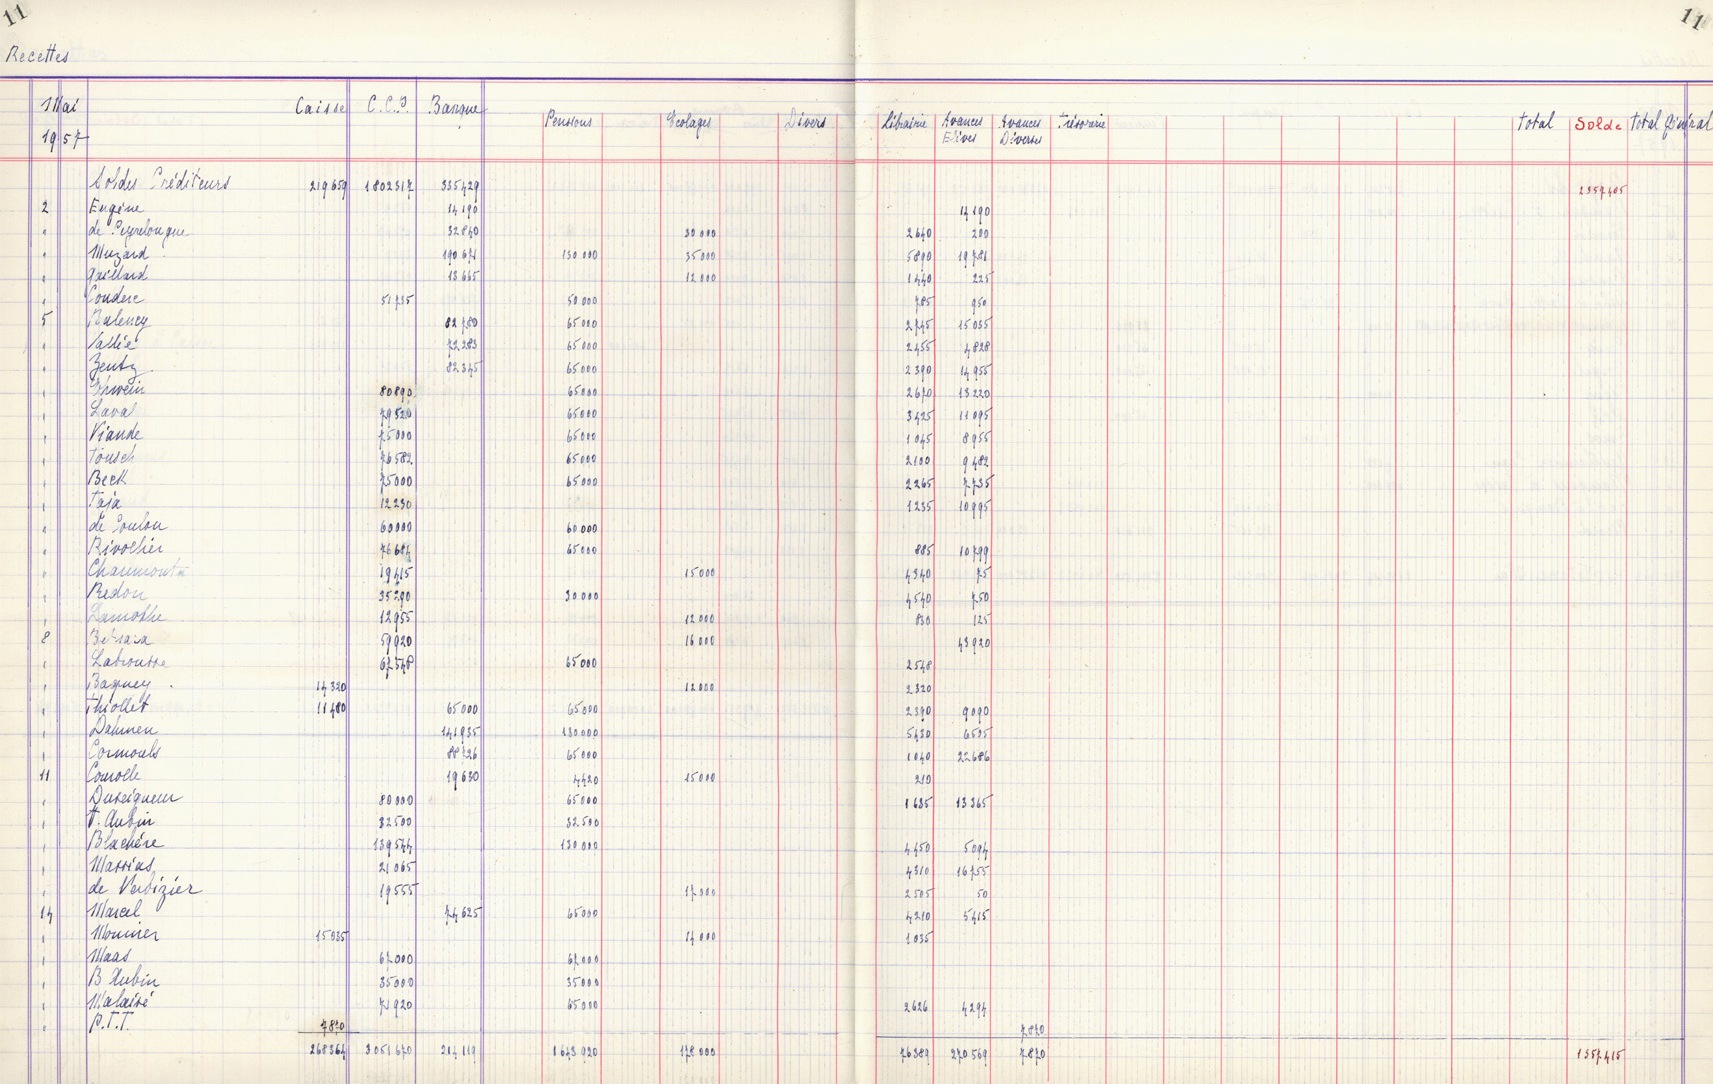 11 11
Recettes
Mai 1957 Caisse C.C.P Banque Pensions Ecolages Divers Librairie Avances Elèves Avances Diverses Trésorerie Total Solde Total général
Soldes Créditeurs 219 659 1 802 317 335 429
2 Eugène 14 190 14 190
de Peyrelongue 32 840 30 000 2 640 200
Muzard 130 000 35 000 5 890
Gaillard 13 665 12 000 1 440 225
Couderc 51 735 50 000 785 950
5 82 780 65 000 2 745 15 035
Vallée 72 283 65 000 2 455 4 828
Zentz 82 345 65 000 2 390 14 955
80 890 65 000 2 670 13 220
Laval 79 520 65 000 3 425 11 095
Viande 75 000 65 000 1 045 8 955
76 582 65 000 2 100 9 482
Beck 75 000 65 000 2 265 7 735
Taja 12 230 1 235 10 995
de Coulon 60 000 60 000
Rivollier 76 684 65 000 885 10 799
19 415 15 000 4 340 75
Redon 35 290 30 000 4 540 750
Lamothe 12 955 12 000 830 125
8 59 920 16 000 43 920
Labrousse 67 548 65 000 2 548
14 320 12 000 2 320
Thiollet 11 480 65 000 65 000 2 390 9 090
Dahmen 141 935 130 000 5 420
65 000 1 040 22 686
11 19 630 4 420 15 000 210
Duseigneur 80 000 65 000 1 635 13 365
F. Aubin 32 500 32 500
Blachère 139 544 130 000 4 450 5 094
Massias 21 065 4 310 16 755
de Verbizier 19 555 17 000 2 505 50
14 Marcel 74 625 65 000 4 210 5 415
Mounier 15 035 14 000 1 035
Maas 67 000 67 000
B. Aubin 35 000 35 000
Malaisé 71 920 65 000 2 626 4 294
P.T.T. 7 870 7 870
268 364 3 051 670 1 643 920 178 000 76 389 270 569 7 870 1 357 415